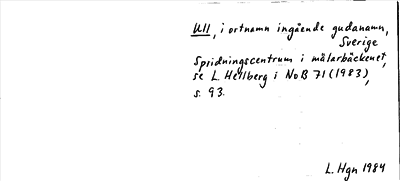 Ull, i ortnamn ingående gudanamn,
Sverige
Spridningscentrum i mälarbäckenet,
se L. Hellberg i NoB 71 (1983),
s. 93.
L. Hgn 1984